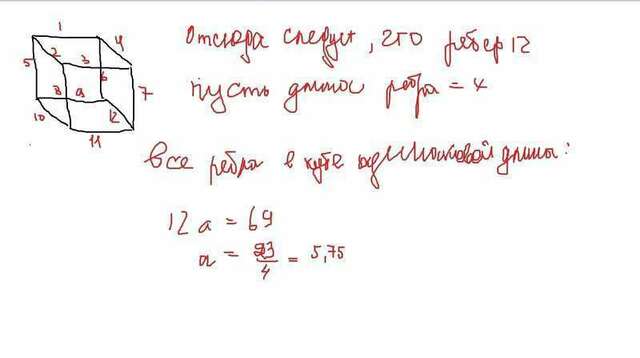 1
4
2
3
5
6
7
8
a
10
12
11
Отсюда следует, что ребер 12
пусть длина ребра = x
все ребра в кубе одинаковой длины:
12 a = 69
a = 23/4 = 5,75